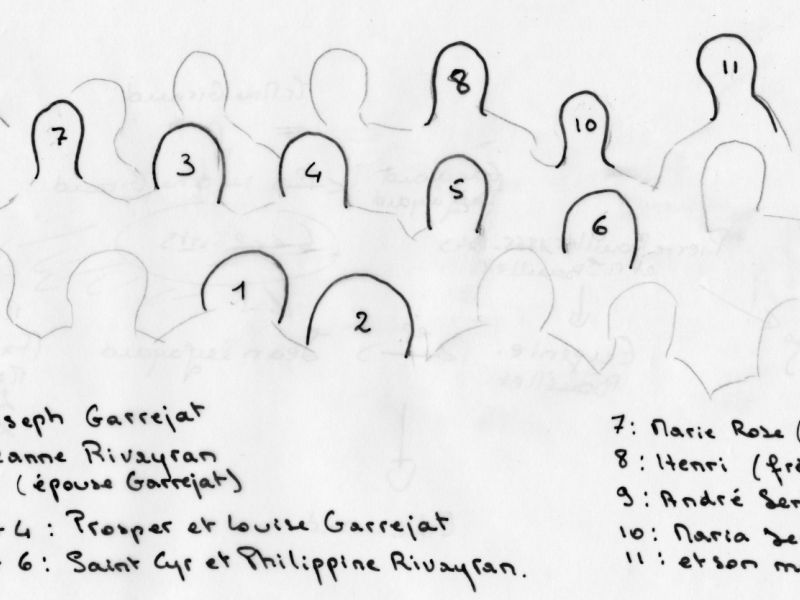 11
8
10
7
3
4
5
6
1
2
seph Garrejat
eanne Rivayran
(épouse Garrejat)
4 : Prosper et Louise Garrejat
6 : Saint Cyr et Philippine Rivayran.
7 : Marie Rose (
8 : Henri (fr
9 : André Ser
10 : Maria Se
11 : et son m